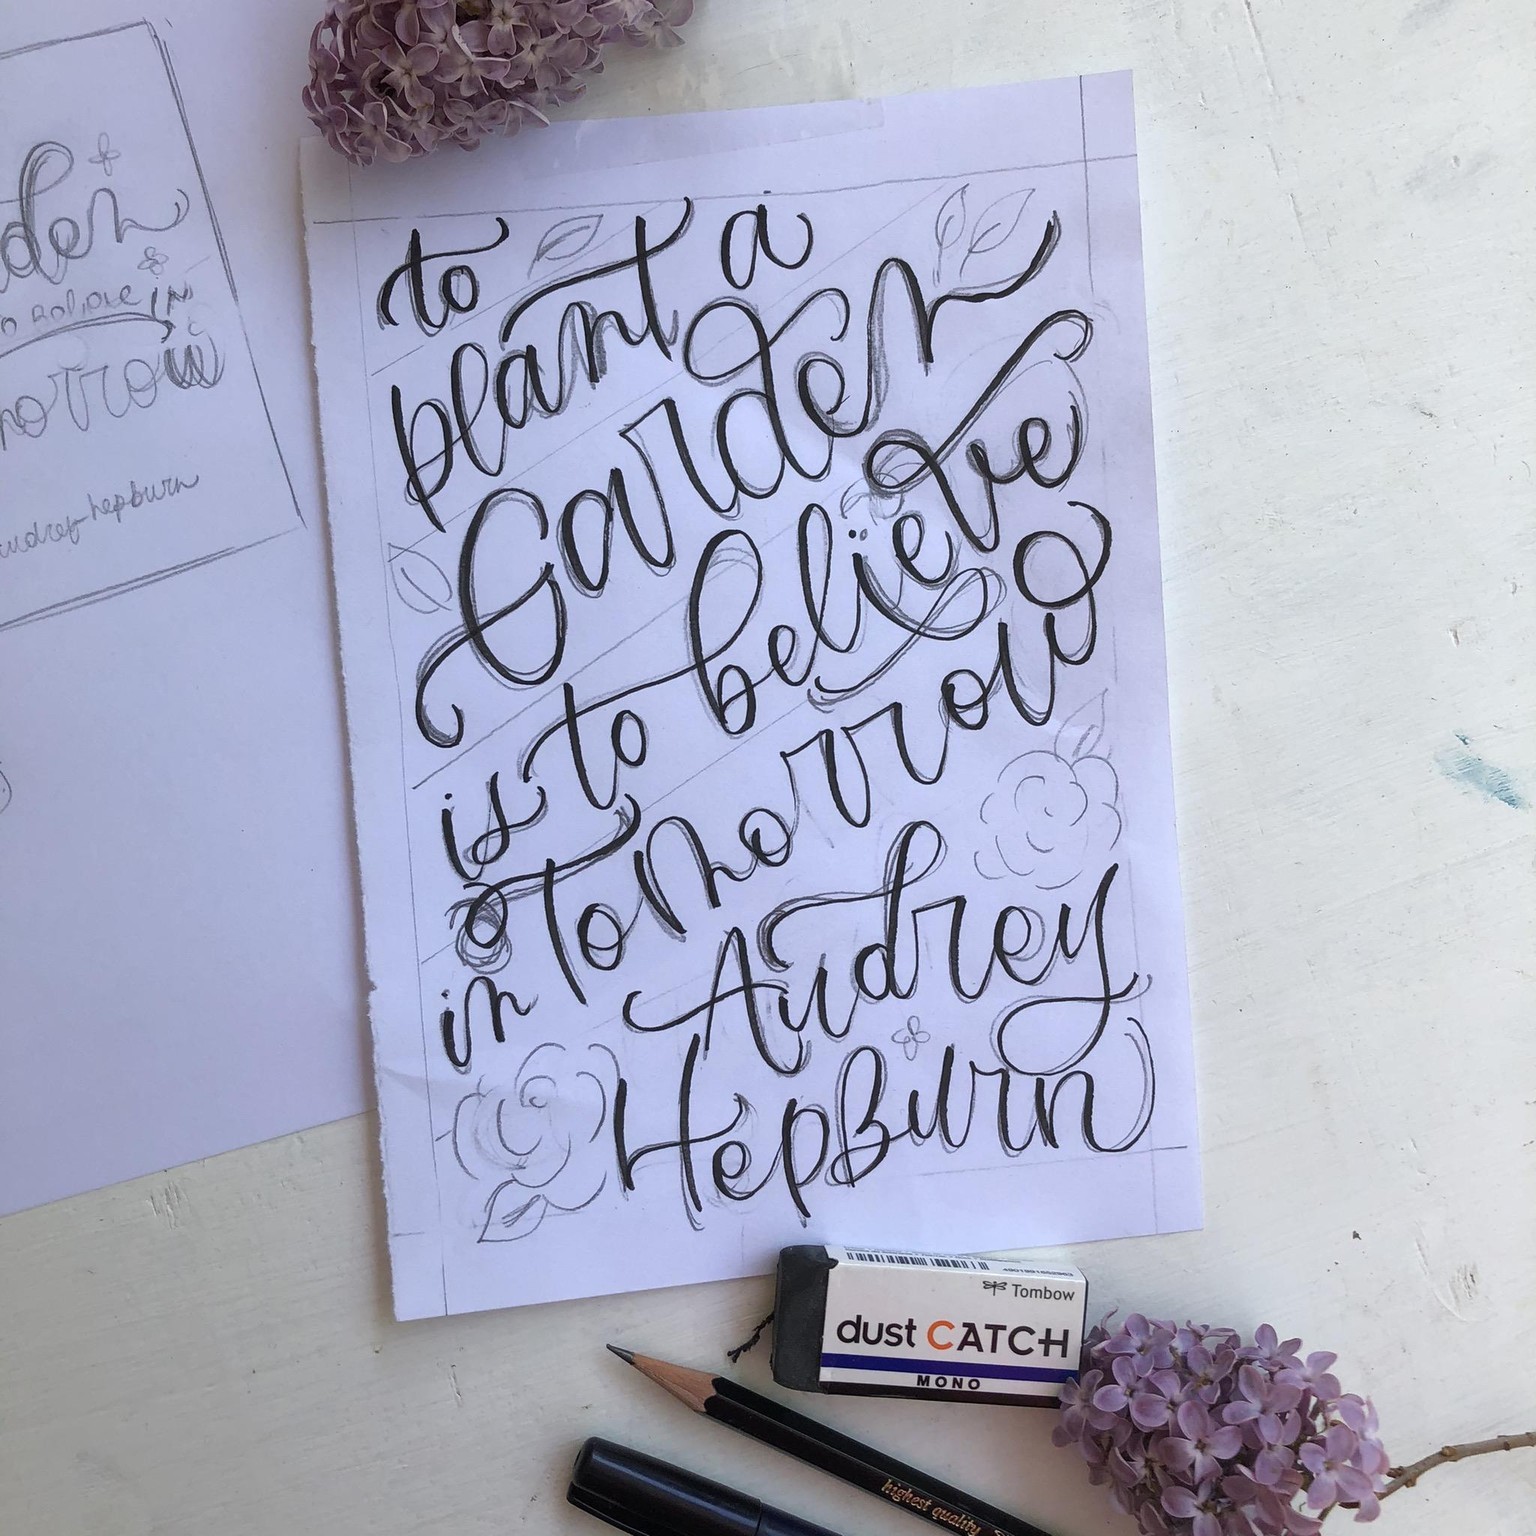 to
plant a
Garden
is to believe
in Tomorrow
Audrey
Hepburn
den
believe in
morrow
audrey hepburn
4901991652963
Tombow
dust CATCH
MONO
highest quality